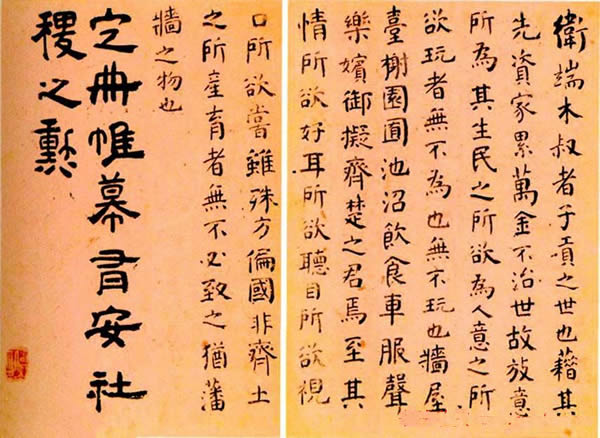 衛端木叔者子貢之世也藉其
先資家累萬金不治世故放意
所為其生民之所欲為人意之所
欲玩者無不為也無不玩也牆屋
臺榭園囿池沼飲食車服聲
樂嬪御擬齊楚之君焉至其
情所欲好耳所欲聽目所欲視
口所欲嘗雖殊方偏國非齊土
之所產育者無不必致之猶藩
牆之物也
定冊帷幕有安社
稷之勲